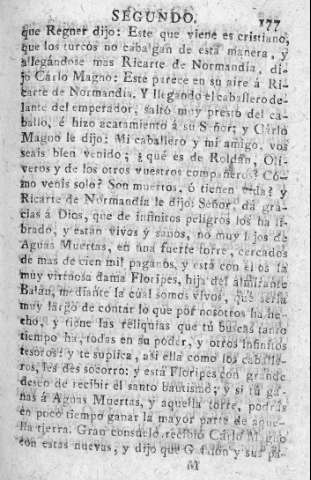 SEGUNDO. 177
que Regner dijo: Este que viene es cristiano,
que los turcos no cabalgan de esta manera, y
allegándose mas Ricarte de Normandía, di-
jo Cárlo Magno: Este parece en su aire á Ri-
carte de Normandía. Y llegando el caballero de-
lante del emperador, saltó muy presto del ca-
ballo, é hizo acatamiento á su Señor; y Cárlo
Magno le dijo: Mi caballero y mi amigo, vos
seais bien venido; ¿qué es de Roldán, Oli-
veros y de los otros vuestros compañeros? Có-
mo venis solo? Son muertos, ó tienen vida? y
Ricarte de Normandía le dijo: Señor, dá gra-
cias á Dios, que de infinitos peligros los ha li-
brado, y están vivos y sanos, no muy lejos de
Aguas Muertas, en una fuerte torre, cercados
de mas de cien mil paganos, y está con ellos la
muy virtuosa dama Floripes, hija del almirante
Balán, mediante la cual somos vivos, que sería
muy largo de contar lo que por nosotros ha he-
cho, y tiene las reliquias que tú buscas tanto
tiempo ha, todas en su poder, y otros infinitos
tesoros: y te suplica, asi ella como los caballe-
ros, les des socorro: y está Floripes con grande
deseo de recibir el santo bautismo; y si tú ga-
nas á Aguas Muertas, y aquella torre, podrás
en poco tiempo ganar la mayor parte de aque-
lla tierra. Gran consuelo recibió Cárlo Magno
con estas nuevas, y dijo que Galalon y sus pa-
M